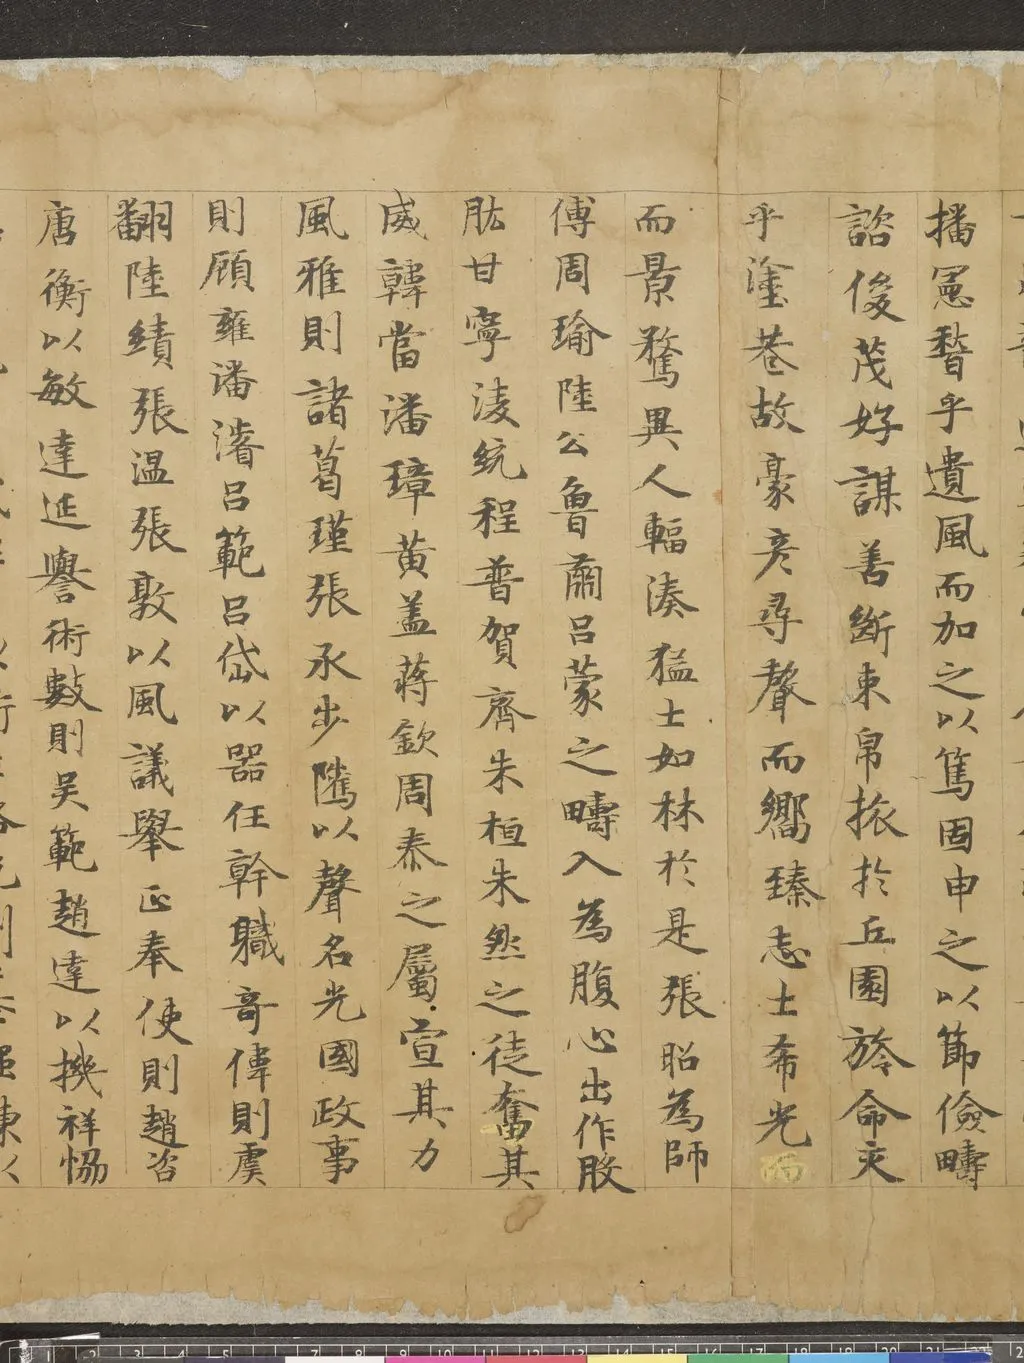 播憲瞀乎遺風而加之以篤固申之以節儉疇
諮俊茂好謀善斷束帛振於丘園旍命交
乎塗巷故豪彥尋聲而嚮臻志士希光
而景騖異人輻湊猛士如林於是張昭為師
傅周瑜陸公魯肅呂蒙之疇入為腹心出作股
肱甘寧淩統程普賀齊朱桓朱然之徒奮其
威韓當潘璋黃蓋蔣欽周泰之屬宣其力
風雅則諸葛瑾張承步騭以聲名光國政事
則顧雍潘濬呂範呂岱以器任幹職奇偉則虞
翻陸績張溫張敦以風議舉正奉使則趙咨
唐衡以敏達延譽術數則吳範趙達以機祥協